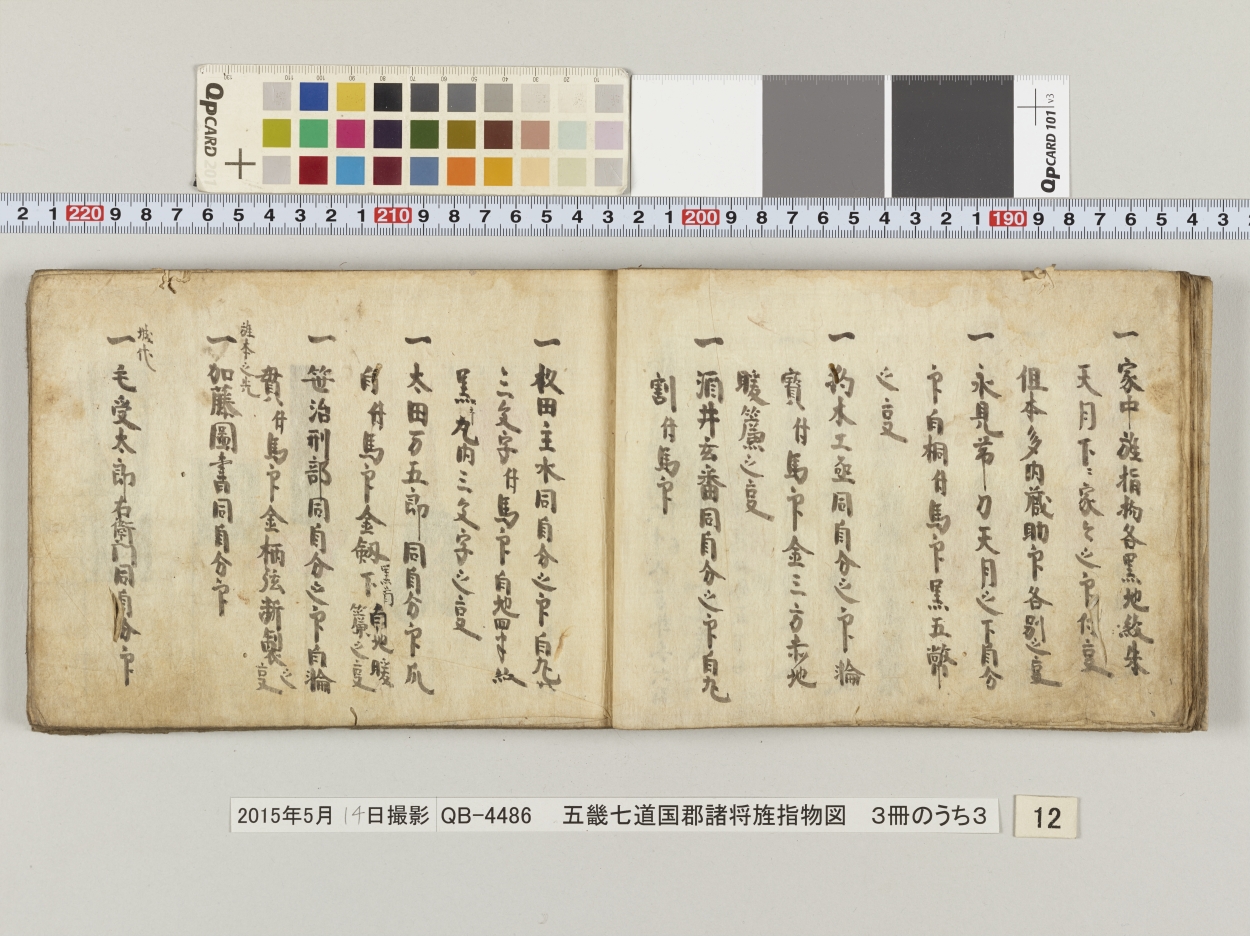 一家中旌指物各黒地紋朱
天月下ニ家々之印付㕝
但本多内蔵助印各別之㕝
一永見帯刀天月之下自分
印白桐付馬印黒五幣
之㕝
一杓木工亟同自分之印瀹
寳付馬印金三方赤地
暖簾之㕝
一酒井玄番同自分之印白九
割付馬印
一枚田主水同自分之印白丸六
三文字付馬印白地四半紋
黒キ丸内三文字之㕝
一太田万五郎同自分印爪
白付馬印金釼下黒角白地暖
簾之㕝
一笹治刑部同自分之印白瀹
貫付馬印金柄弦新製之㕝
旌本之先
一加藤圖書同自分印
城代
一毛受太郎右衛門同自分印
QPCARD 201
QPCARD 101 v3
2 1 220 9 8 7 6 5 4 3 2 1 210 9 8 7 6 5 4 3 2 1 200 9 8 7 6 5 4 3 2 1 190 9 8 7 6 5 4 3
2015年5月14日撮影 QB-4486 五畿七道国郡諸将旌指物図 3冊のうち3
12